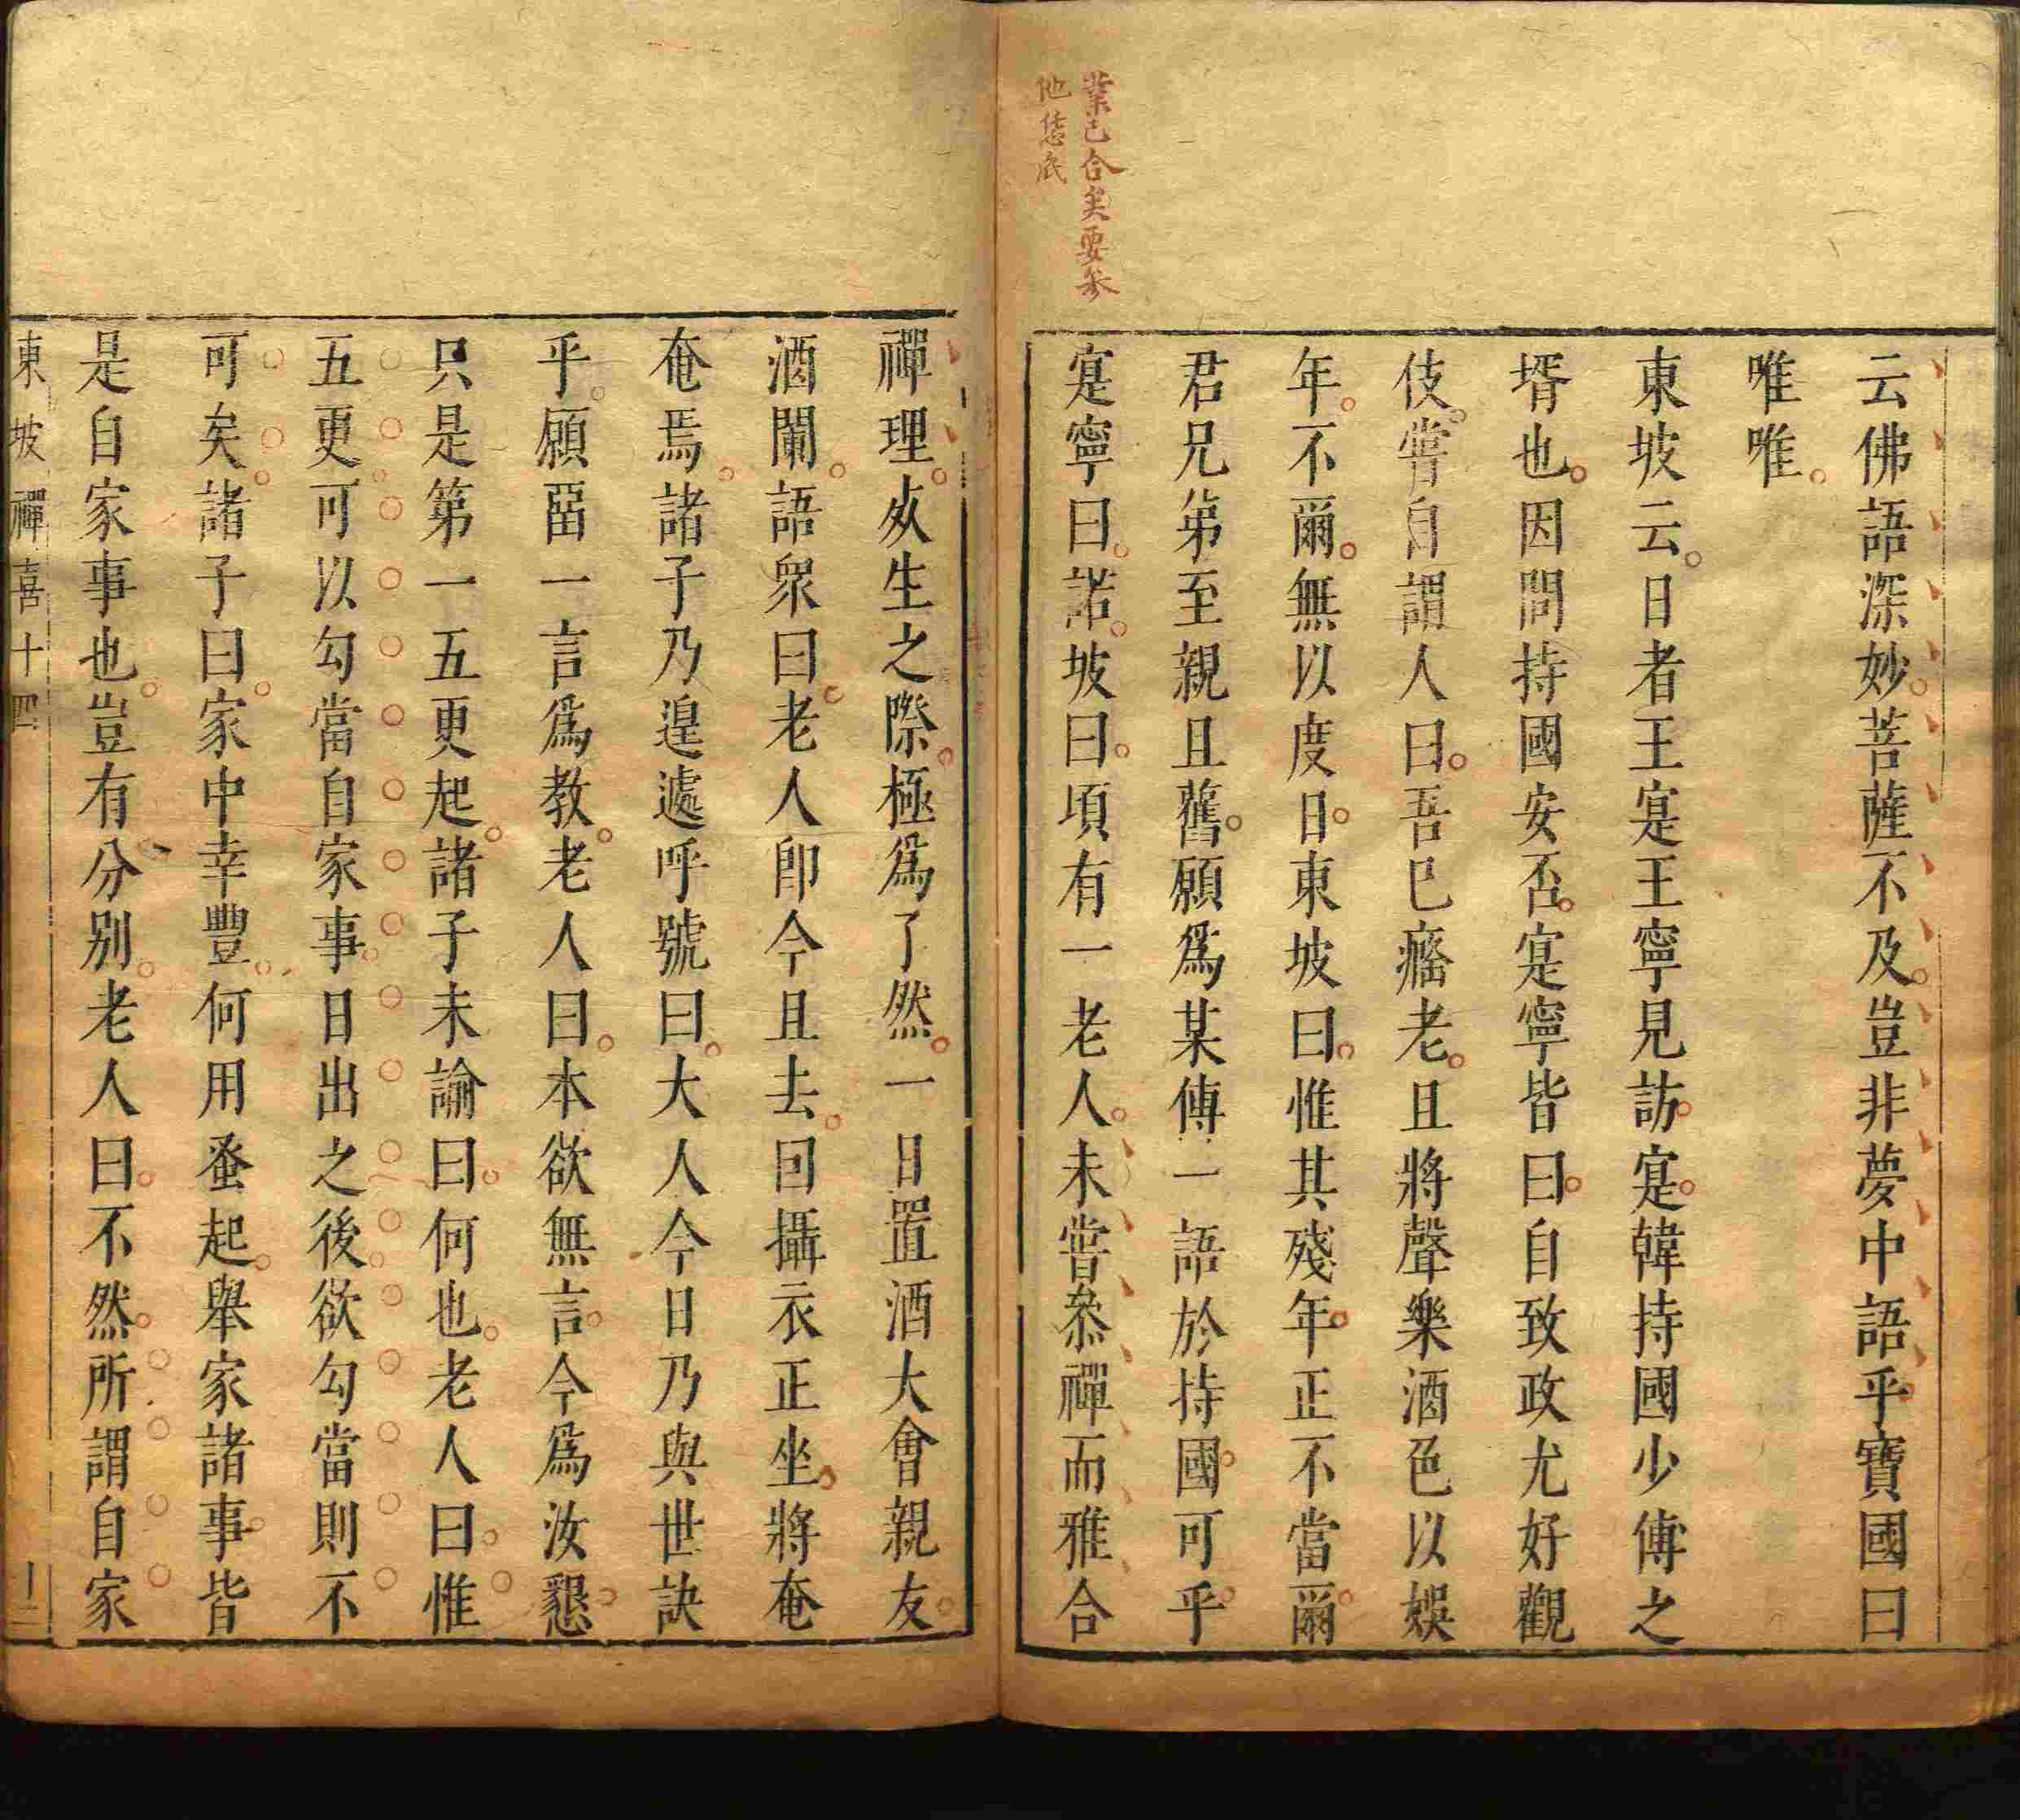 業已合矣要參
他恁底
云佛語深妙菩薩不及豈非夢中語乎寶國曰
唯唯
東坡云日者王寔王寧見訪寔韓持國少傅之
壻也因問持國安否寔寧皆曰自致政尤好觀
伎嘗自謂人曰吾已癃老且將聲樂酒色以娛
年不爾無以度日東坡曰惟其殘年正不當爾
君兄弟至親且舊願爲某傳一語於持國可乎
寔寧曰諾坡曰頃有一老人未嘗叅禪而雅合
禪理死生之際極爲了然一日置酒大會親友
酒闌語衆曰老人卽今且去回攝衣正坐將奄
奄焉諸子乃遑遽呼號曰大人今日乃與世訣
乎願畱一言爲教老人曰本欲無言今爲汝懇
只是第一五更起諸子未諭曰何也老人曰惟
五更可以勾當自家事日出之後欲勾當則不
可矣諸子曰家中幸豐何用蚤起舉家諸事皆
是自家事也豈有分别老人曰不然所謂自家
東坡禪喜十四